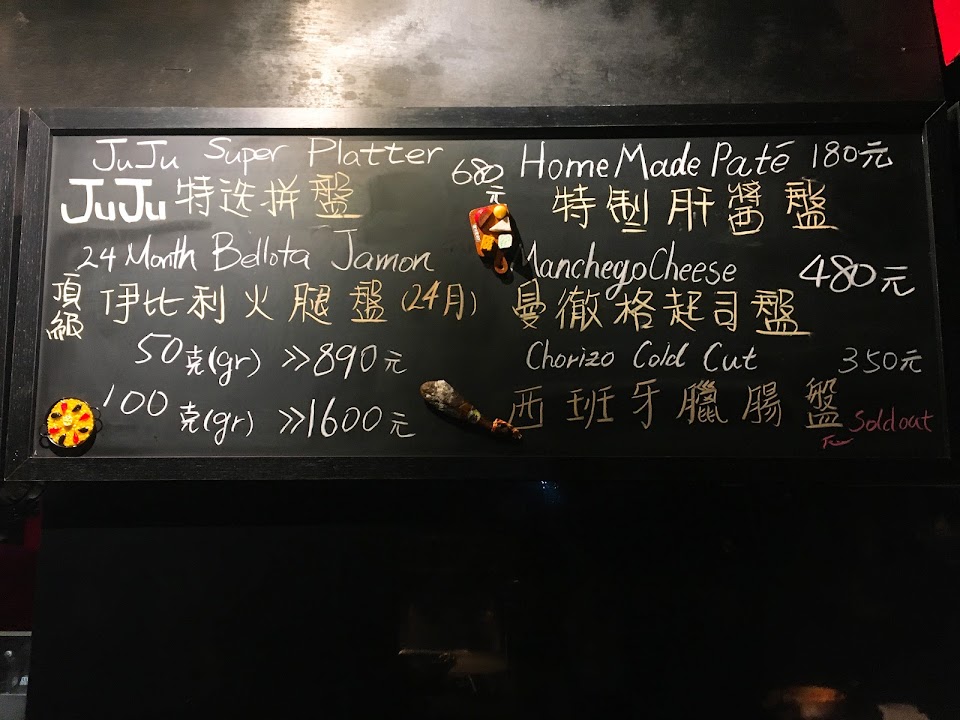 JuJu Super Platter 680元
JuJu 特选拼盤
24 Month Bellota Jamon
頂級 伊比利火腿盤(24月)
50克(gr) >>890元
100克(gr) >>1600元
Home Made Paté 180元
特製肝醬盤
Manchego Cheese 480元
曼徹格起司盤
Chorizo Cold Cut 350元
西班牙臘腸盤 Sold out